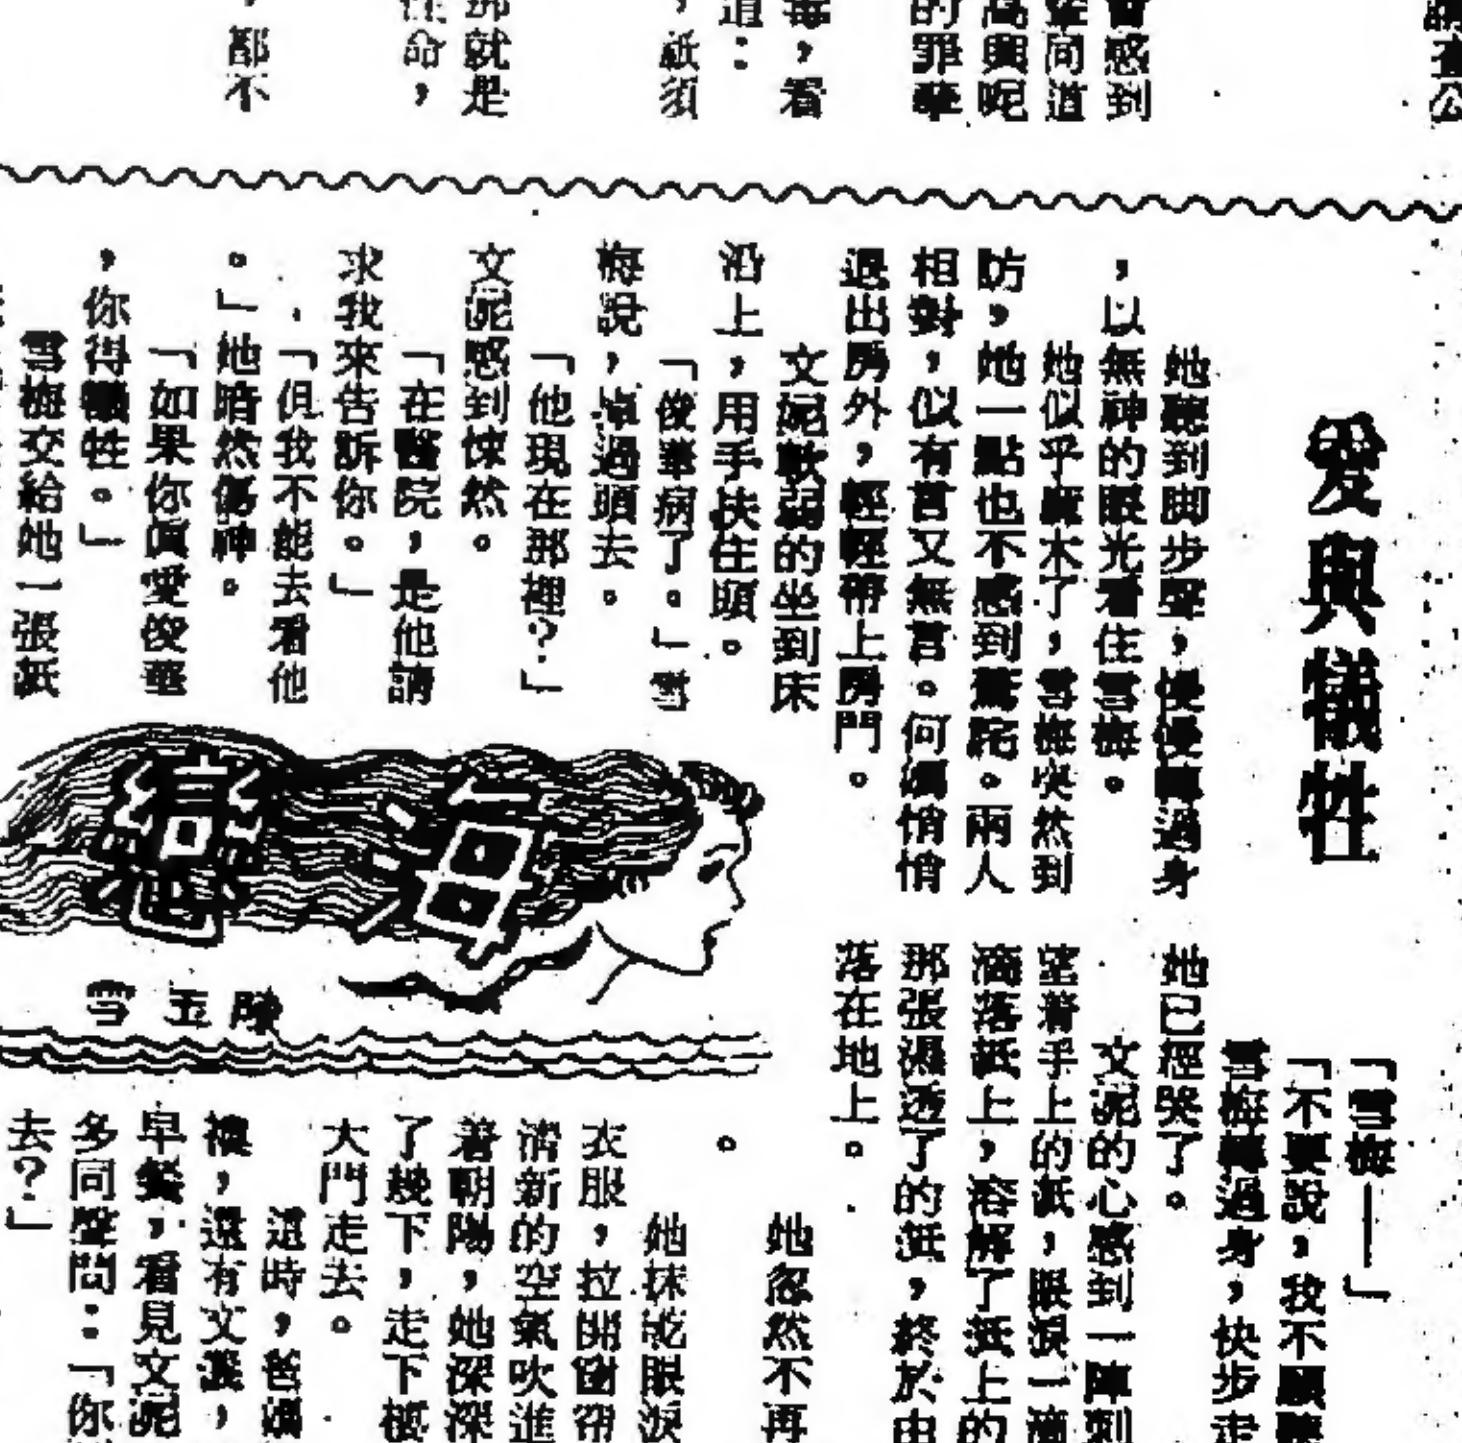 會感到
間道
高興呢
的罪孽
,看
道:
,祇須
那就是
性命,
,都不
愛與犧牲
她聽到脚步聲,慢慢轉過身
,以無神的眼光看住雪梅。
她似乎麻木了,雪梅突然到
訪,她一點也不感到驚詫。兩人
相對,似有言又無言。何媽悄悄
退出房外,輕輕帶上房門。
文泥軟弱的坐到床
沿上,用手扶住頭。
「俊華病了。」雪
梅說,掉過頭去。
「他現在那裡?」
文泥感到悚然。
「在醫院,是他請
求我來告訴你。」
「但我不能去看他
。」她暗然傷神。
「如果你眞愛俊華
,你得犧牲。」
雪梅交給她一張紙
海戀
陳玉雪
「雪梅——」
「不要說,我不願聽
雪梅轉過身,快步走
她已經哭了。
文泥的心感到一陣刺
望着手上的紙,眼淚一滴
滴落紙上,溶解了紙上的
那張濕透了的紙,終於由
落在地上。
她忽然不再
。
她抹乾眼淚
衣服,拉開窗帘
清新的空氣吹進
着朝陽,她深深
了幾下,走下樓
大門走去。
這時,爸媽
樓,還有文
早餐,看見文泥
多同聲問:「你
去?」